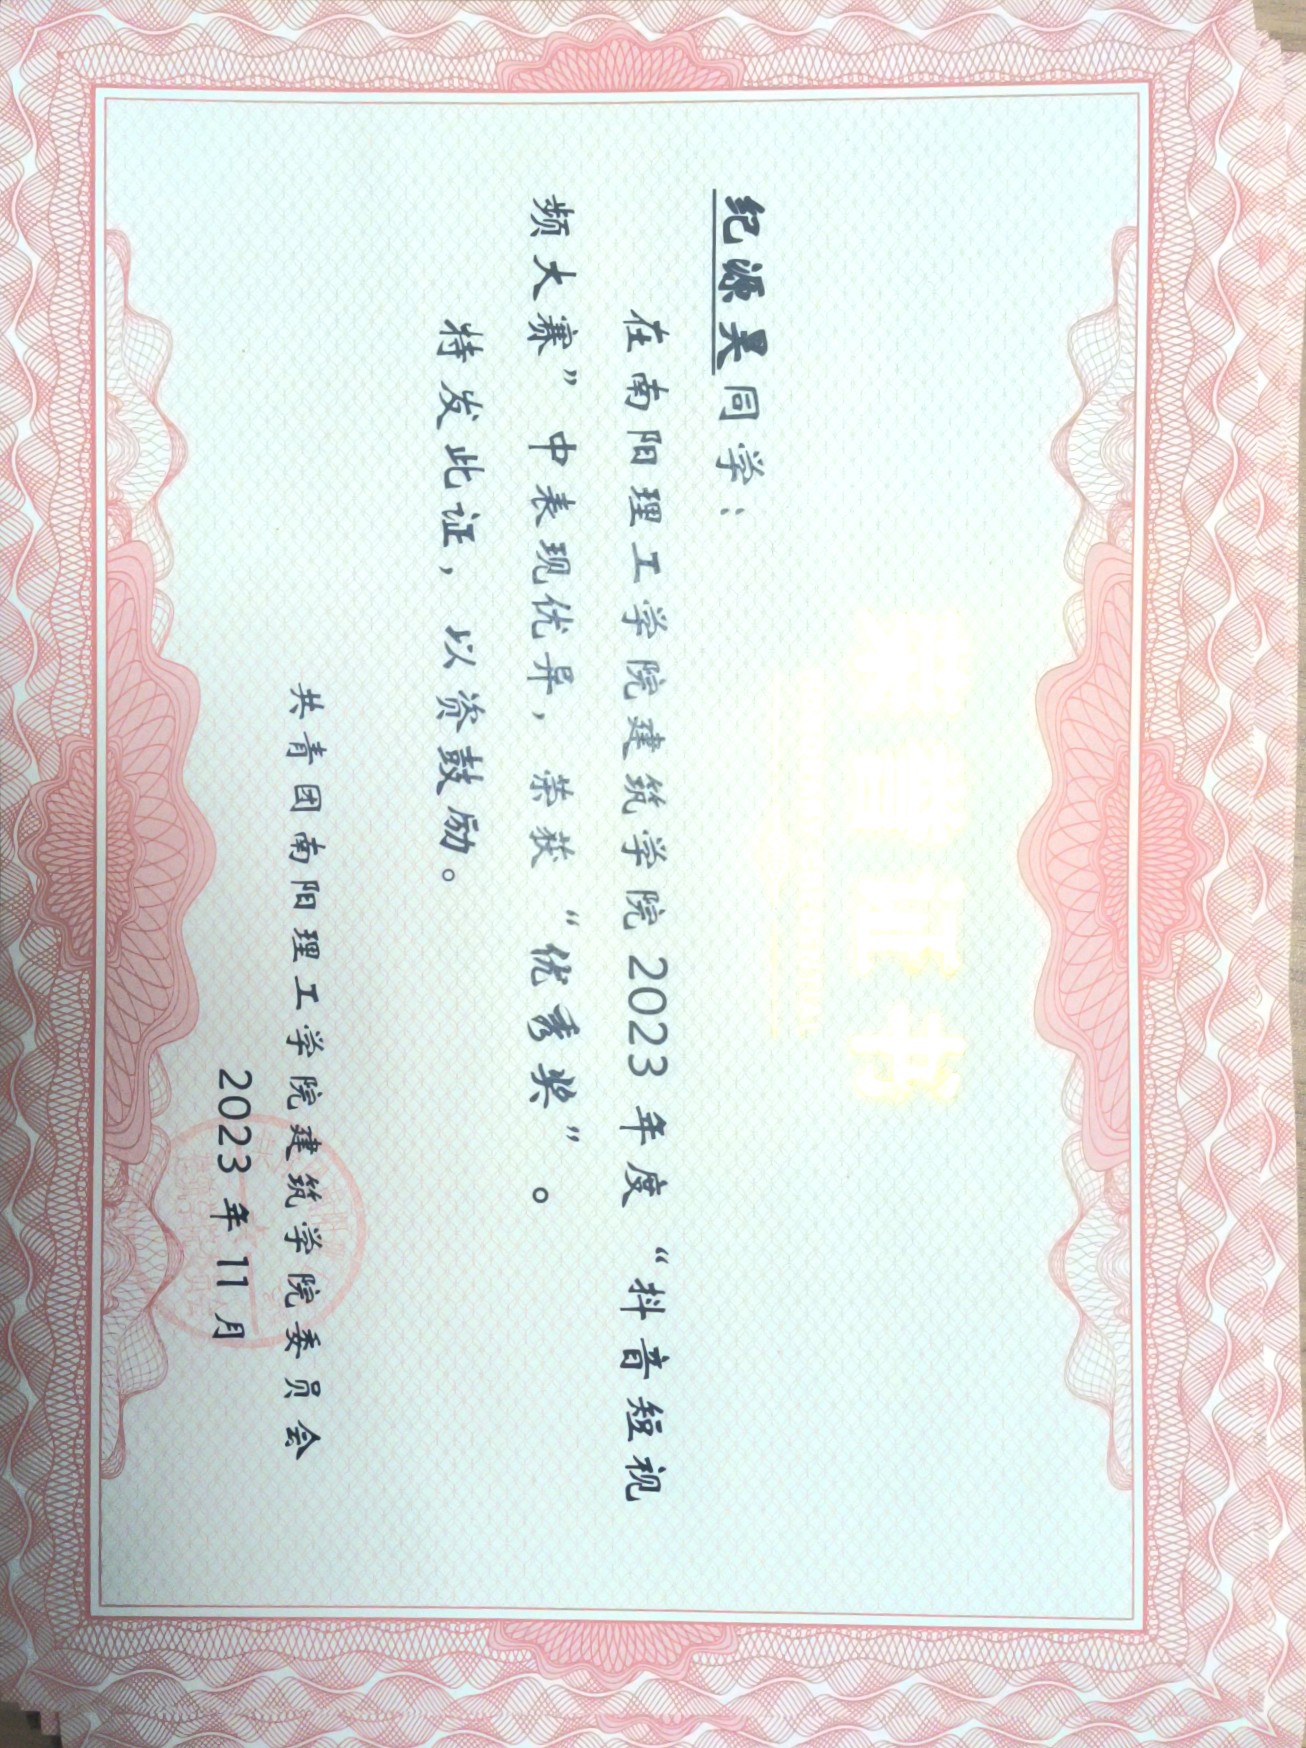 荣誉证书
纪源昊同学：
在南阳理工学院建筑学院2023年度“抖音短视
频大赛”中表现优异，荣获“优秀奖”。
特发此证，以资鼓励。
共青团南阳理工学院建筑学院委员会
2023年11月